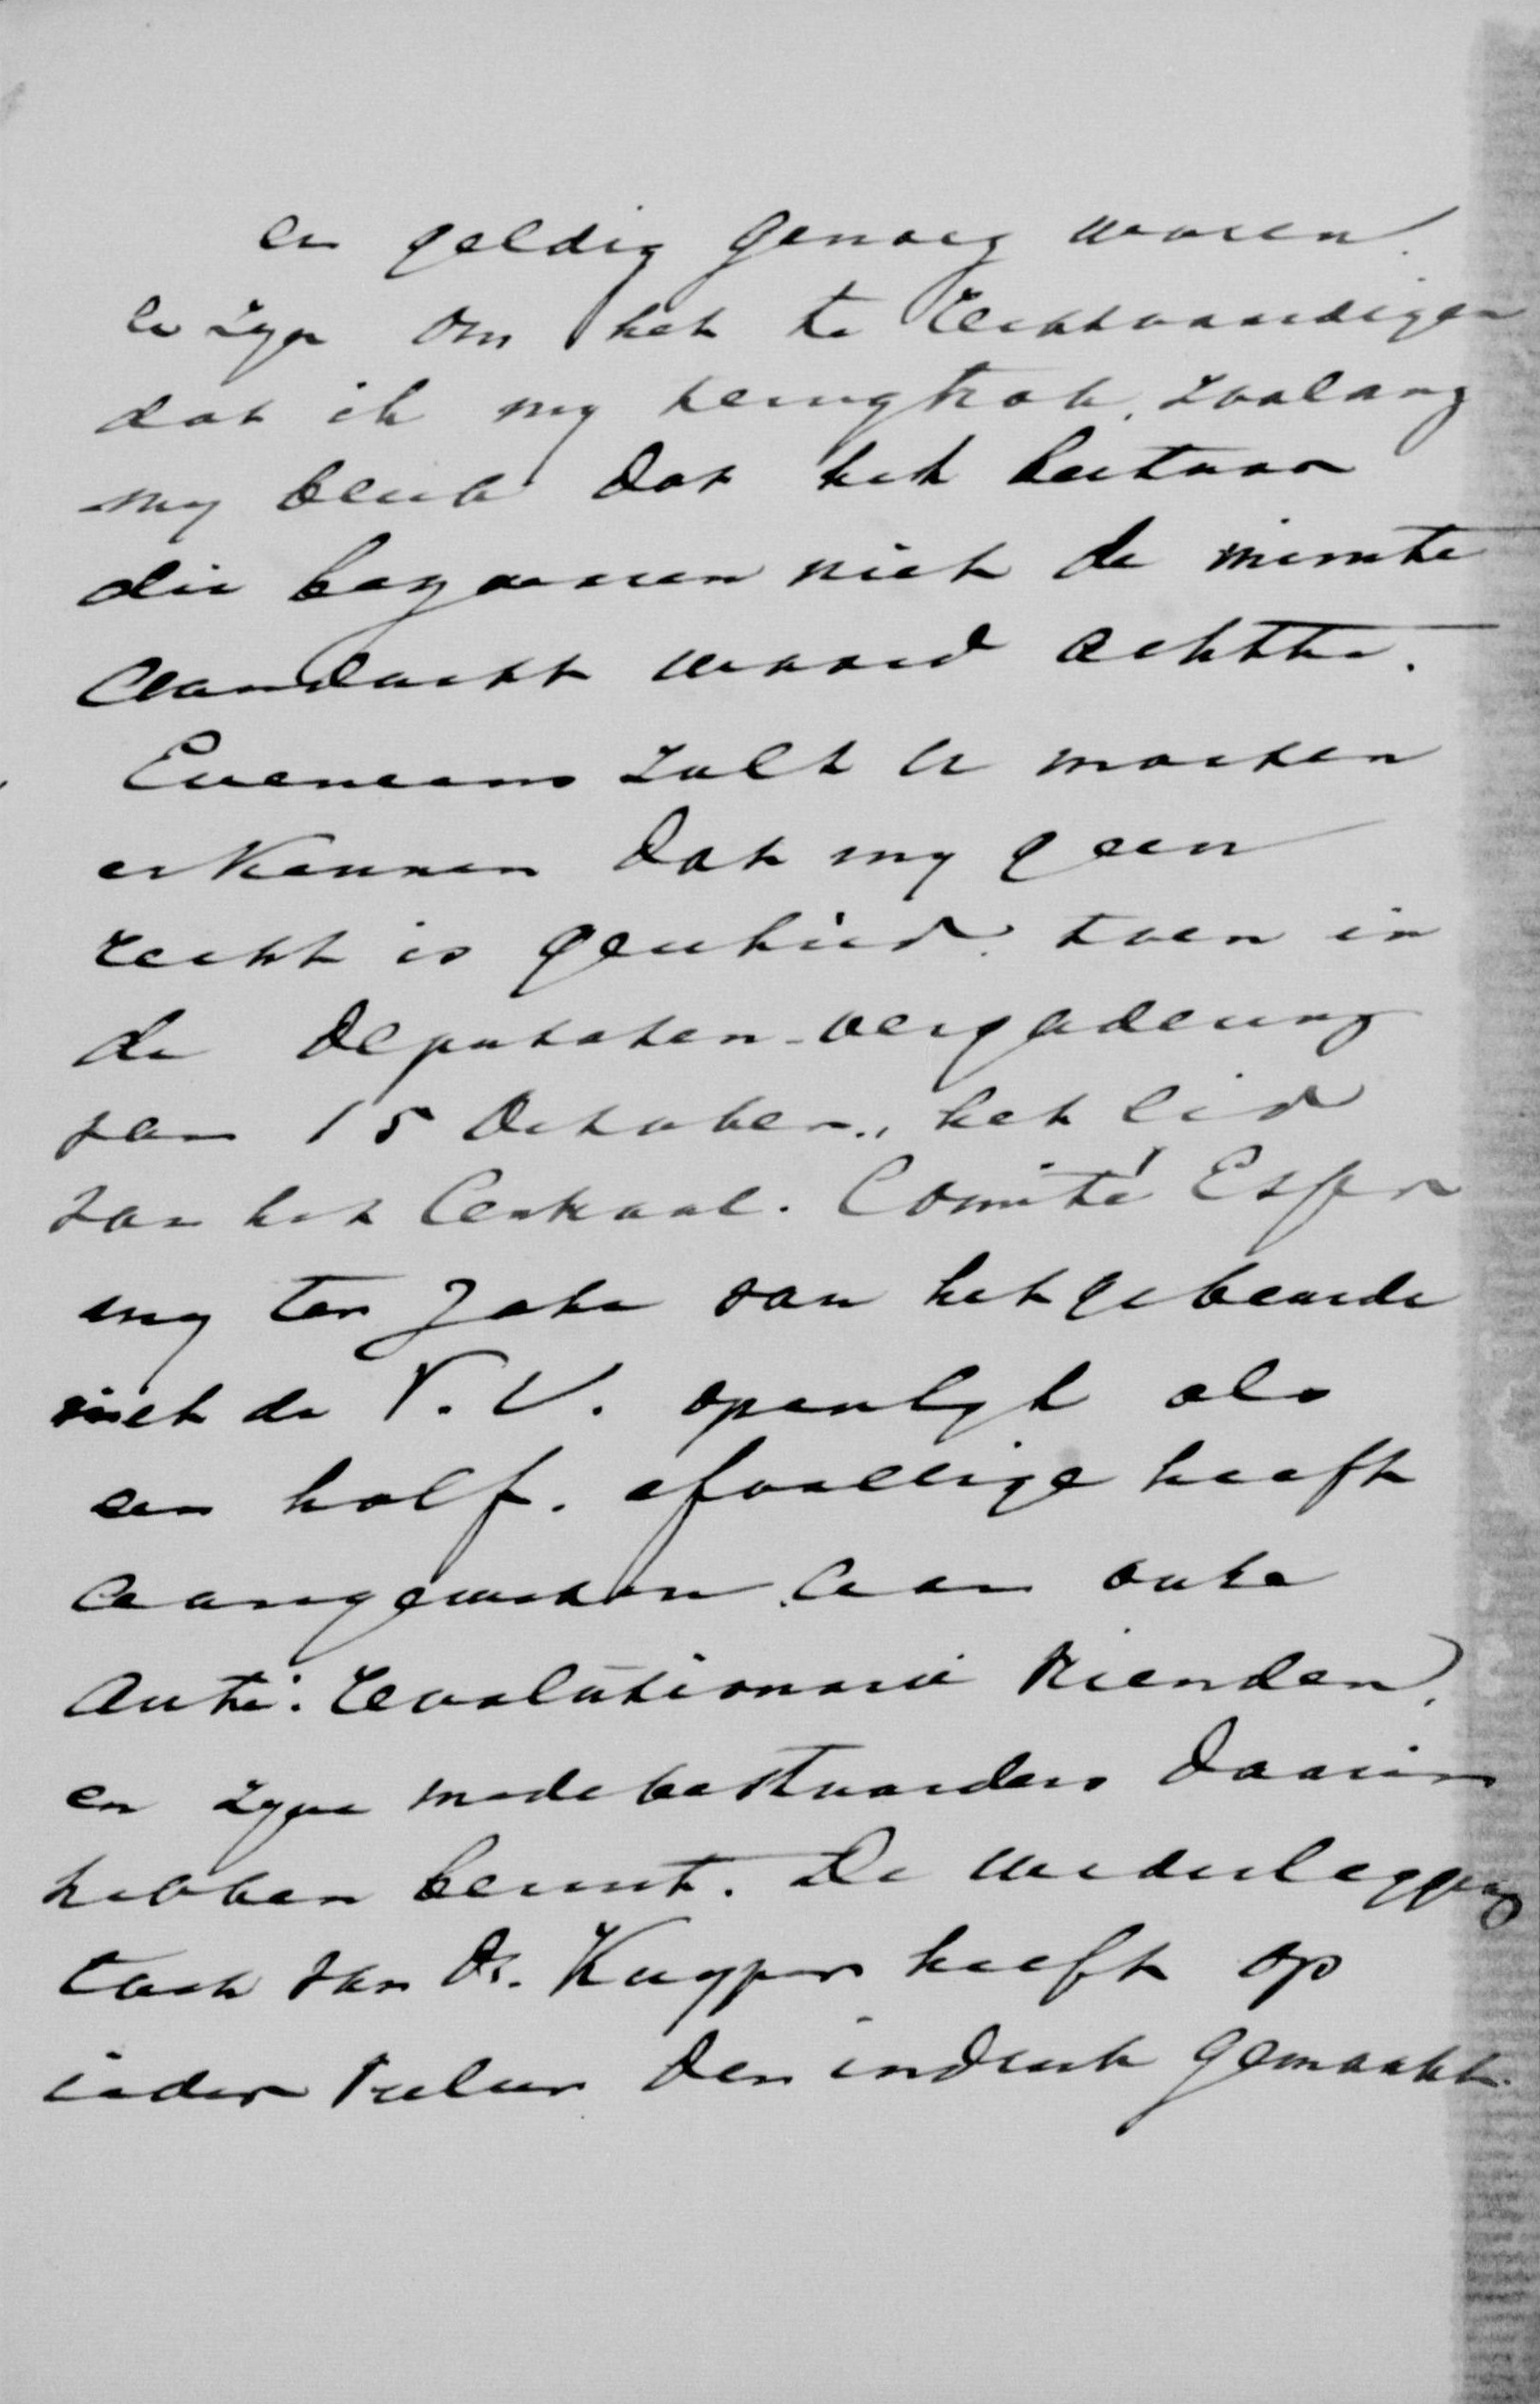 en geldig genoeg waren
en zyn om het te rechtvaardigen
dat ik my terugtrok, zoolang
my bleek dat het bestuur
die bezwaren niet de minste
aandacht waard achtte.
Eveneens zult u moeten
erkennen dat my geen
recht is geschied, toen in
de Deputaten-vergadering
van 15 October,, het lid
van het Centraal. Comité Esser
my ter zake van het gebeurde
met de V. U. openlyk als
een half. afvallige heeft
aangewezen aan onze
Anti. revolutionaire vrienden,
en zyne medebestuurders daarin
hebben berust. De wederlegging
van Dr. Kuyper heeft op
ieder den indruk gemaakt